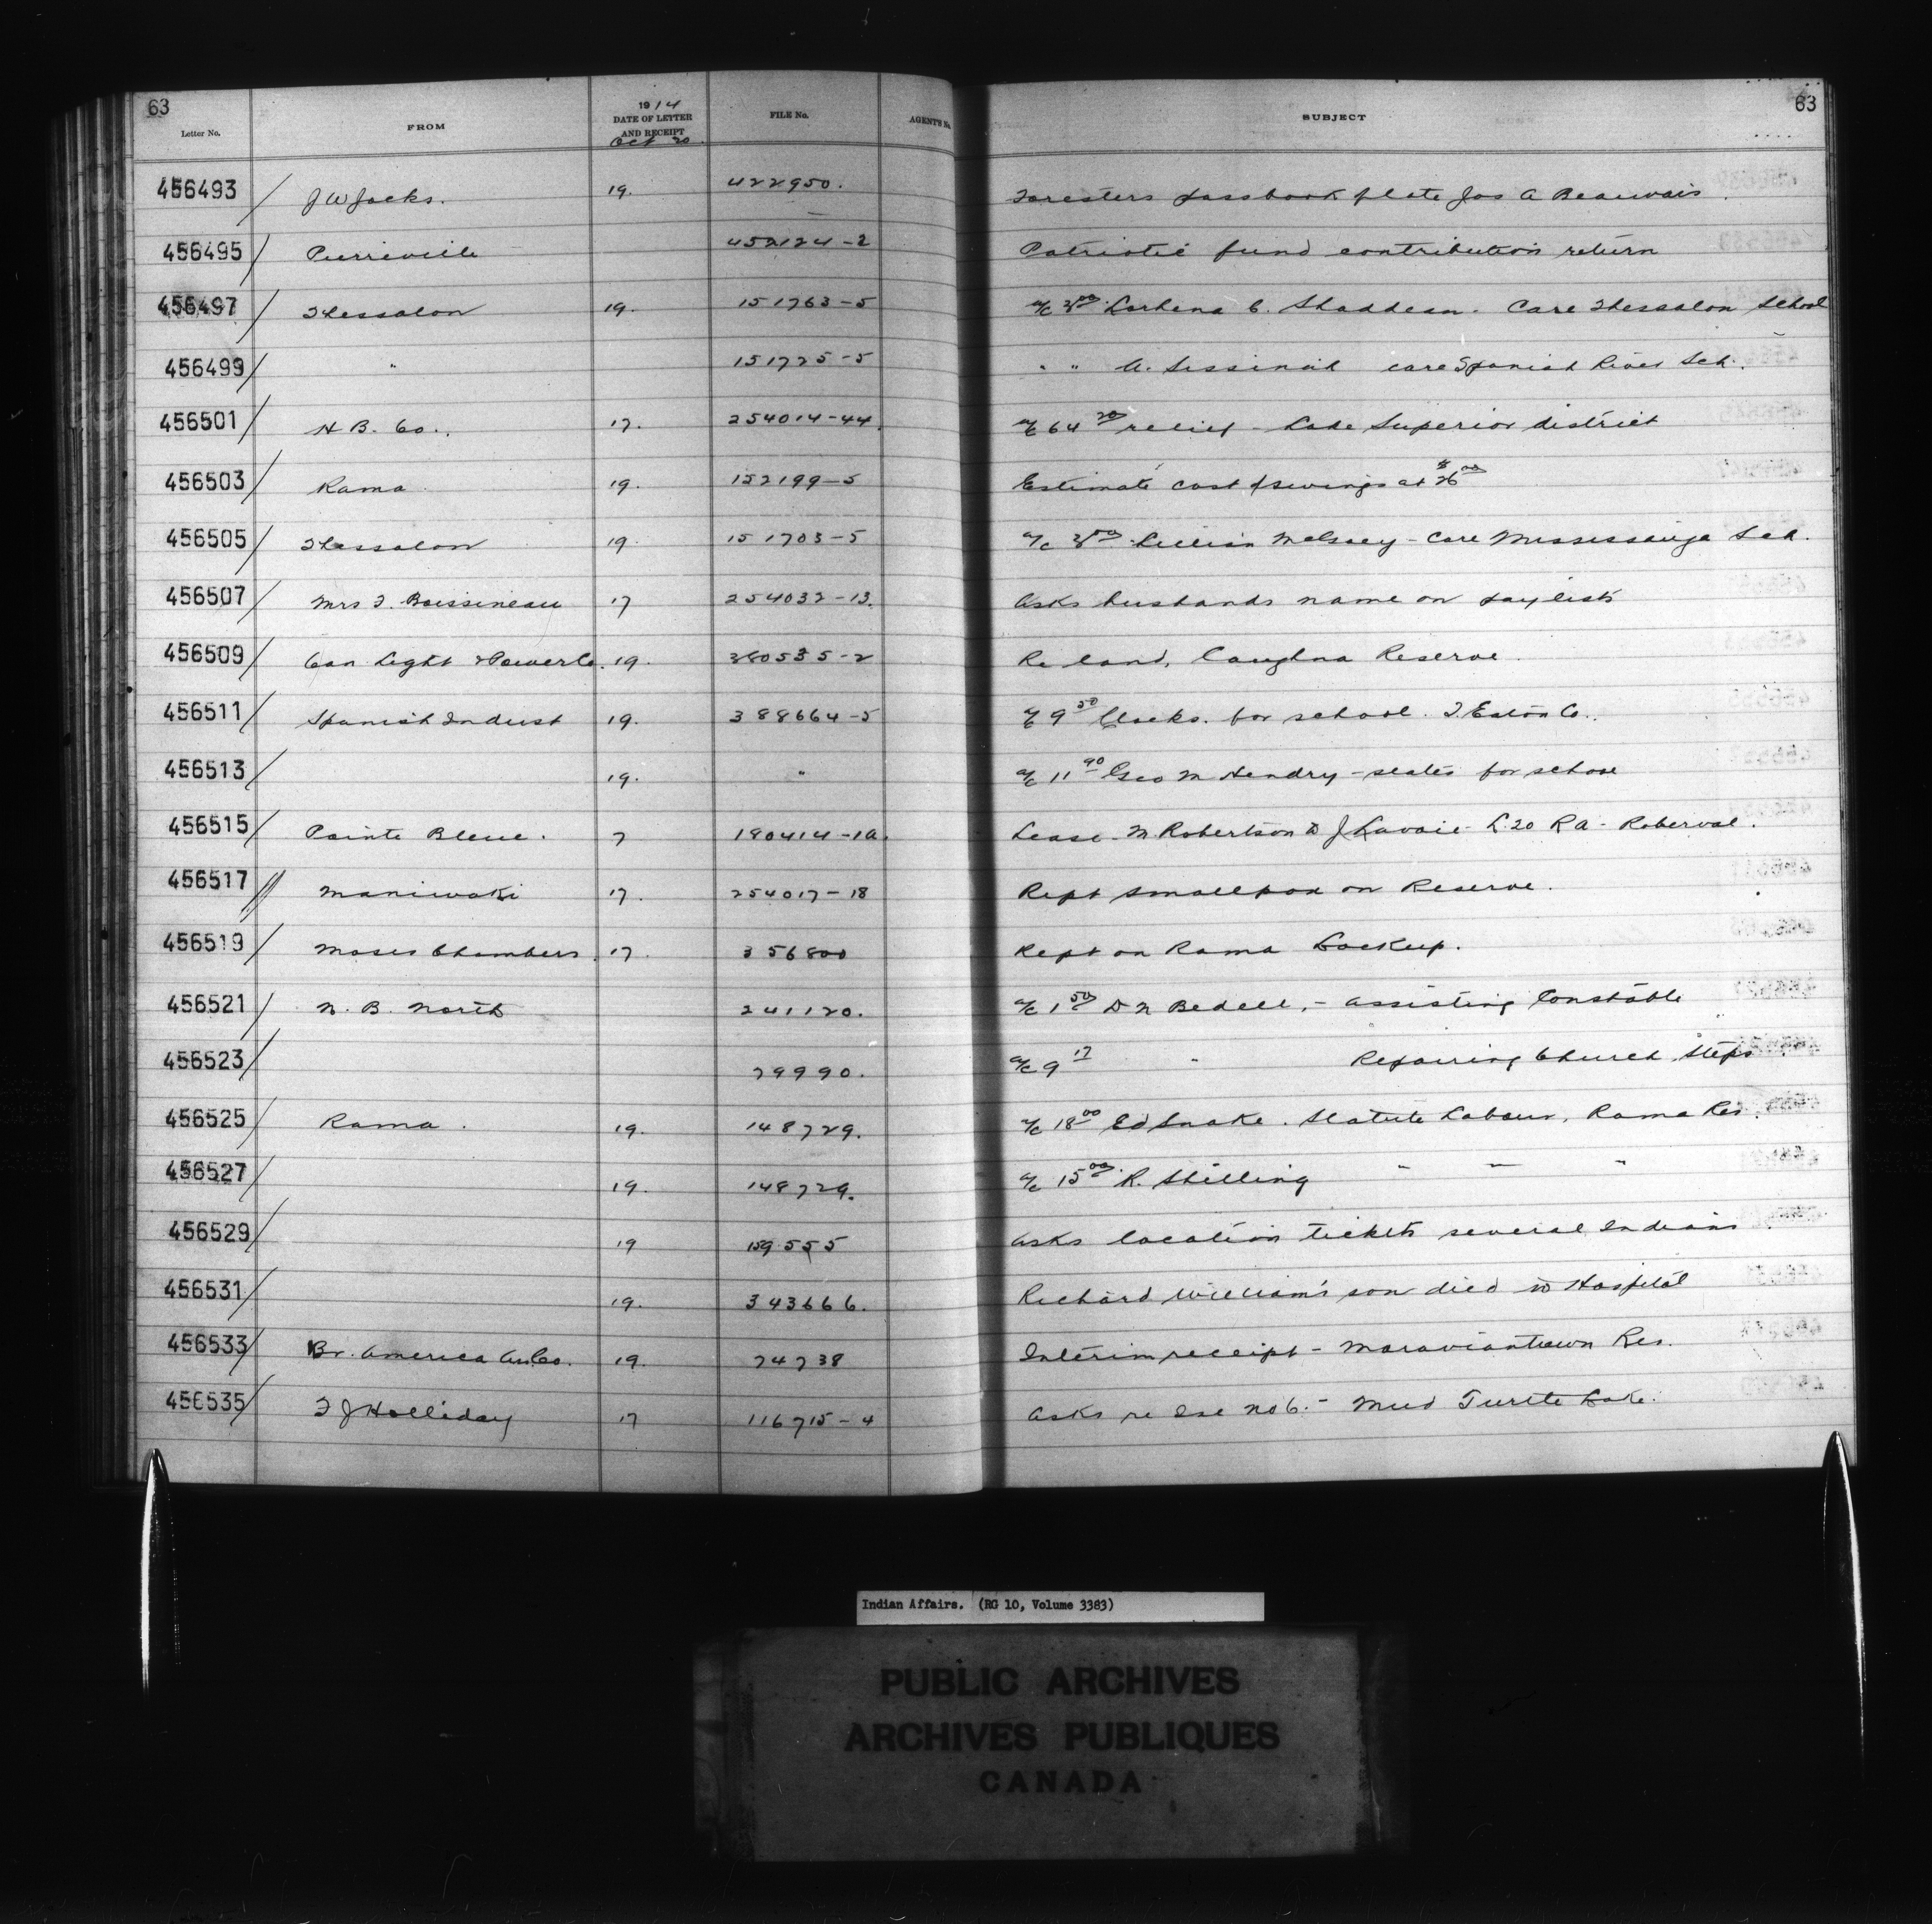 63
Letter No. FROM 1914 DATE OF LETTER AND RECEIPT Oct 20. FILE No. AGENT'S No. SUBJECT 63
456493 / J W Jacks. 19. 422950. Foresters passbook plate Jos A Beauvais
456495 / Pierreville 452124-2 Patriotic fund contribution return
456497 / Thessalon 19. 151763-5 a/c 3 00 C. Care Thessalon School
456499 / " 151725-5 " " care Spanish River Sch.
456501 / H B. Co.. 17. 254014-44. a/c 64 20 relief - Lake Superior district
456503 / Rama 19. 152199-5 Estimate cost swings at $26 00
456505 / Thessalon 19. 151703-5 a/c Care Mississauga Sch.
456507 / Mrs F. Boissineau 17 254032-13. Asks husbands name on paylists
456509 / Can Light & Power Co. 19. 380535-2 Re land, Caughna Reserve
456511 / Spanish Indust 19. 388664-5 a/c 9 50 Clocks. for school. T. Eaton Co..
456513 / 19. " a/c 11 90 Geo M Hendry - for school
456515 / Pointe Bleue. 7 190414-1a. Lease - M Robertson to J Lavoie - L. 20 R A - Roberval.
456517 // Maniwaki 17. 254017-18 Rept smallpox on Reserve.
456519 / Moses Chambers. 17. 356800 Rept on Rama Lockup.
456521 / N. B. North 241120. a/c 1 50 D N Bedell, - assisting Constable
456523 / 29990. a/c 9 17 " Repairing Church Steps
456525 / Rama. 19. 148729. a/c 18 00 Ed Snake. Statute Labour, Rama Res.
456527 / 19. 148729. a/c 15 00. R. Stilling " " "
456529 / 19 159555 Asks location tickets several Indians
456531 / 19. 343666. Richard William's son died in Hospital
456533 / Br. America 19. 74738 Interim receipt - Moraviantown Res.
456535 / F J Holliday 17 116715-4 Asks re Isl No 6. - Mud Turtle Lake.
Indian Affairs. (RG 10, Volume 3383)
PUBLIC ARCHIVES
ARCHIVES PUBLIQUES
CANADA